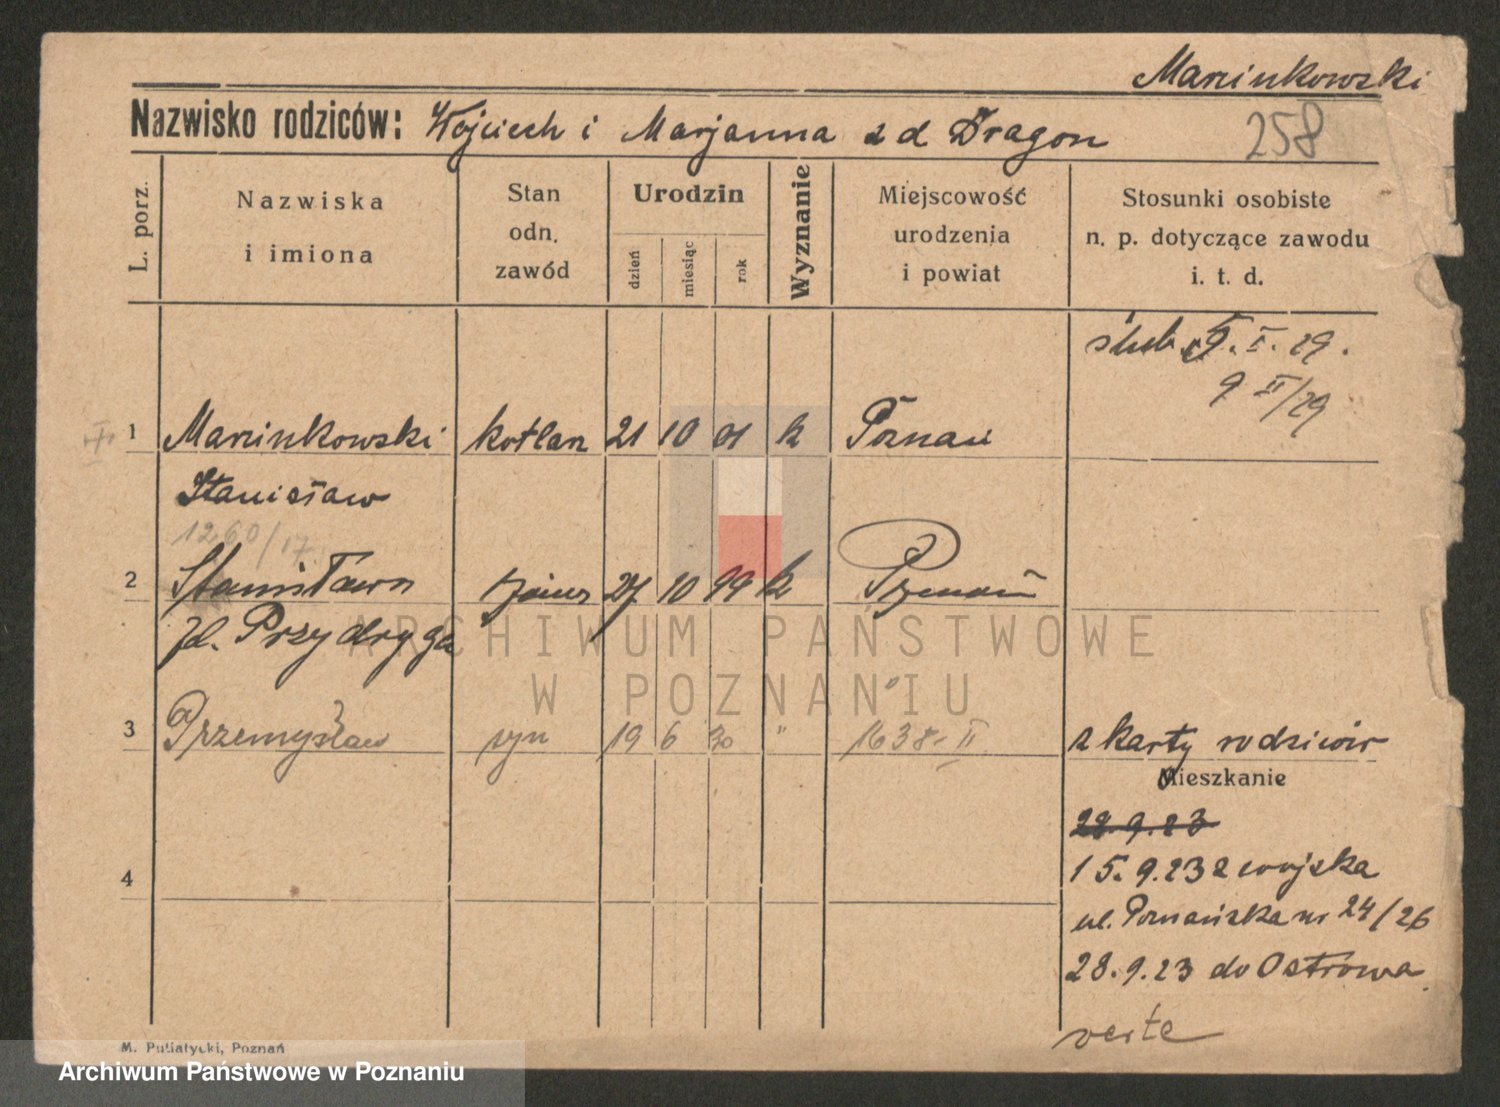 Marcinkowski
Nazwisko rodziców: Wojciech i Marjanna z d Dragon 258
L. porz.
Nazwiska
i imiona
Stan
odn.
zawód
Urodzin
dzień
miesiąc
rok
Wyznanie
Miejscowość
urodzenia
i powiat
Stosunki osobiste
n. p. dotyczące zawodu
i. t. d.
ślub 9. I. 29.
9 II/29
1 Marcinkowski kotlarz 21 10 01 k Poznań
Stanisław
1260/17
2 Stanisława 27 10 99 k Poznań
zd. Przydryga
3 Przemysław syn 19 6 30 " 1638-II z karty rodziców
Mieszkanie
28.9.23
15.9.23 z wojska
4
ul. Poznańska nr 24/26
28.9.23 do Ostrowa
verte
M. Putiatycki, Poznań
ARCHIWUM PAŃSTWOWE
W POZNANIU
Archiwum Państwowe w Poznaniu